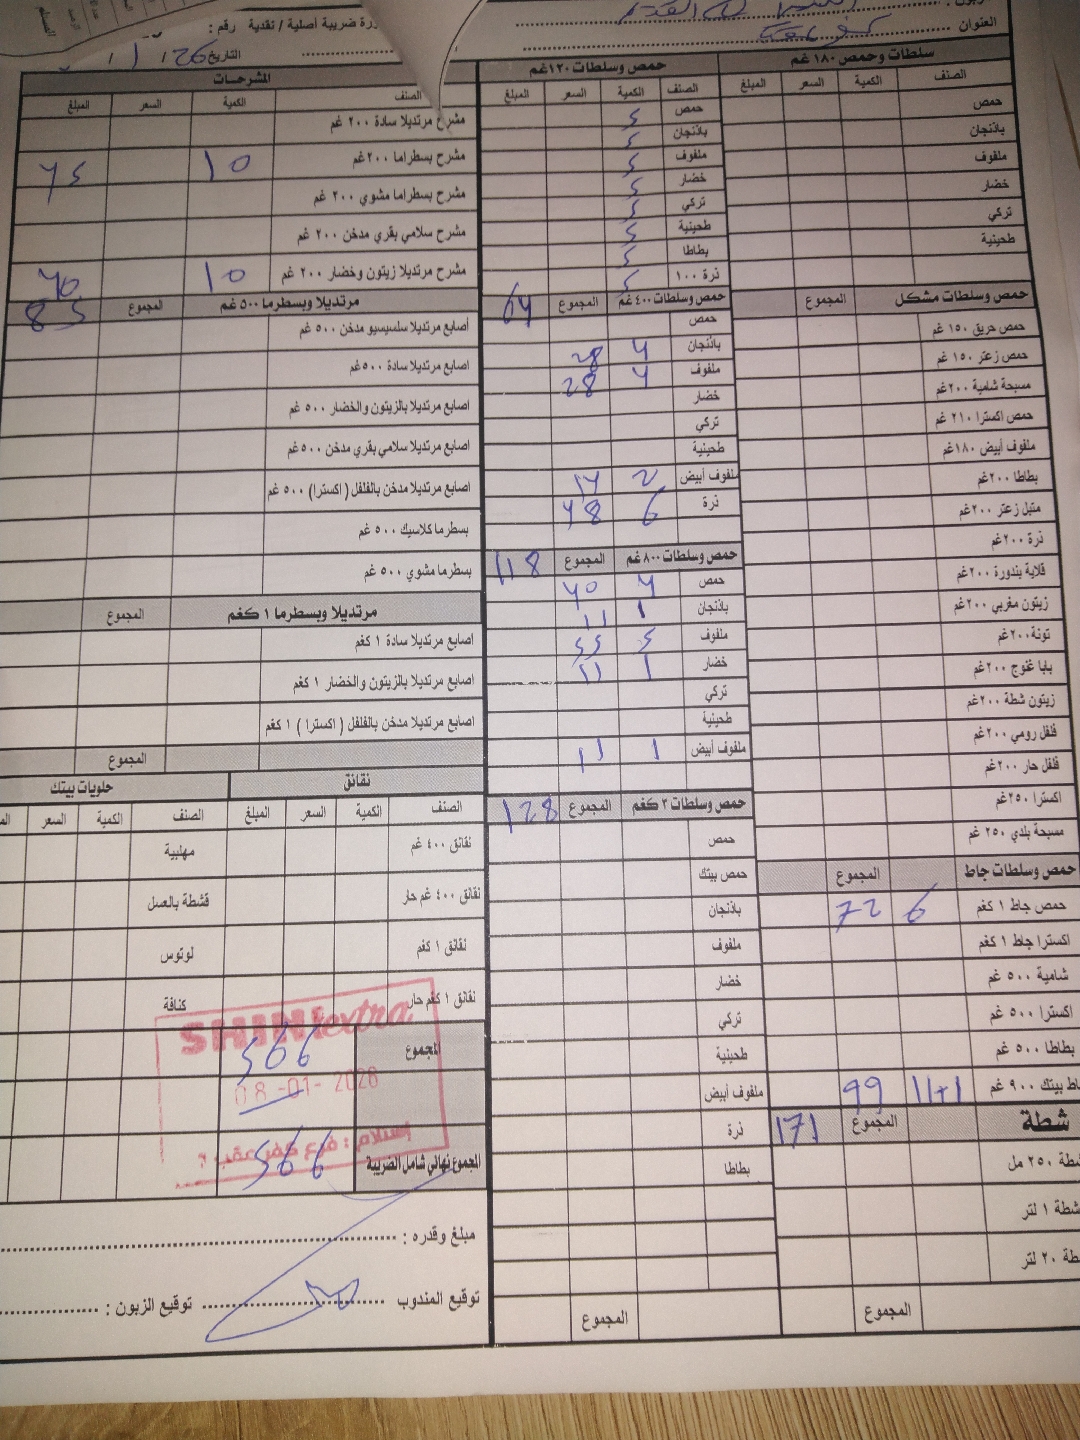 ورة ضريبة أصلية / نقدية رقم :
العنوان
التاريخ / 1 / 26
سلطات وحمص ١٨٠ غم
الصنف الكمية السعر المبلغ
حمص
باذنجان
ملفوف
خضار
تركي
طحينية
حمص وسلطات مشكل المجموع
حمص حريق ١٥٠ غم
حمص زعتر ١٥٠ غم
مسبحة شامية ٢٠٠غم
حمص اكسترا ٢١٠ غم
ملفوف أبيض ١٨٠غم
بطاطا ٢٠٠غم
متبل زعتر ٢٠٠غم
ذرة ٢٠٠غم
قلاية بندورة ٢٠٠غم
زيتون مغربي ٢٠٠غم
تونة٢٠٠غم
بابا غنوج ٢٠٠غم
زيتون شطة ٢٠٠غم
فلفل رومي ٢٠٠غم
فلفل حار ٢٠٠غم
اكسترا ٢٥٠غم
مسبحة بلدي ٢٥٠ غم
حمص وسلطات جاط المجموع
حمص جاط ١ كغم 6 72
اكسترا جاط ١ كغم
شامية ٥٠٠ غم
اكسترا ٥٠٠ غم
بطاطا ٥٠٠ غم
اط بيتك ٩٠٠ غم 11+1 99
شطة المجموع 171
شطة ٢٥٠ مل
شطة ١ لتر
طة ٢٠ لتر
المجموع
حمص وسلطات ١٢٠غم
الصنف الكمية السعر المبلغ
حمص
باذنجان
ملفوف
خضار
تركي
طحينية
بطاطا
ذرة ١٠٠
حمص وسلطات ٤٠٠ غم المجموع 64
حمص
باذنجان 4 28
ملفوف 4 28
خضار
تركي
طحينية
ملفوف أبيض 2 14
ذرة 6 48
حمص وسلطات ٨٠٠ غم المجموع 118
حمص 4 40
باذنجان 1 11
ملفوف 5 55
خضار 1 11
تركي
طحينية
ملفوف أبيض 1 11
حمص وسلطات ٣ كغم المجموع 128
حمص
حمص بيتك
باذنجان
ملفوف
خضار
تركي
طحينية
ملفوف أبيض
ذرة
بطاطا
المجموع
المشرحات
الصنف الكمية السعر المبلغ
مشرح مرتديلا سادة ٢٠٠ غم
مشرح بسطراما ٢٠٠غم 10 45
مشرح بسطراما مشوي ٢٠٠ غم
مشرح سلامي بقري مدخن ٢٠٠ غم
مشرح مرتديلا زيتون وخضار ٢٠٠ غم 10 40
مرتديلا وبسطرما ٥٠٠ غم المجموع 85
أصابع مرتديلا سلسيسيو مدخن ٥٠٠ غم
اصابع مرتديلا سادة ٥٠٠غم
اصابع مرتديلا بالزيتون والخضار ٥٠٠ غم
اصابع مرتديلا سلامي بقري مدخن ٥٠٠ غم
اصابع مرتديلا مدخن بالفلفل ( اكسترا) ٥٠٠ غم
بسطرما كلاسيك ٥٠٠ غم
بسطرما مشوي ٥٠٠ غم
مرتديلا وبسطرما ١ كغم المجموع
اصابع مرتديلا سادة ١ كغم
اصابع مرتديلا بالزيتون والخضار ١ كغم
اصابع مرتديلا مدخن بالفلفل ( اكسترا ) ١ كغم
المجموع
نقانق
الصنف الكمية السعر المبلغ
نقانق ٤٠٠ غم
نقانق ٤٠٠ غم حار
نقانق ١ كغم
نقانق ١ كغم حار
حلويات بيتك
الصنف الكمية السعر
مهلبية
قشطة بالعسل
لوتوس
كنافة
المجموع 566
SHINI extra
08-01-2026
إستلام : فرع كفر عقب ٢
المجموع نهائي شامل الضريبة 566
مبلغ وقدره :
توقيع المندوب
توقيع الزبون :